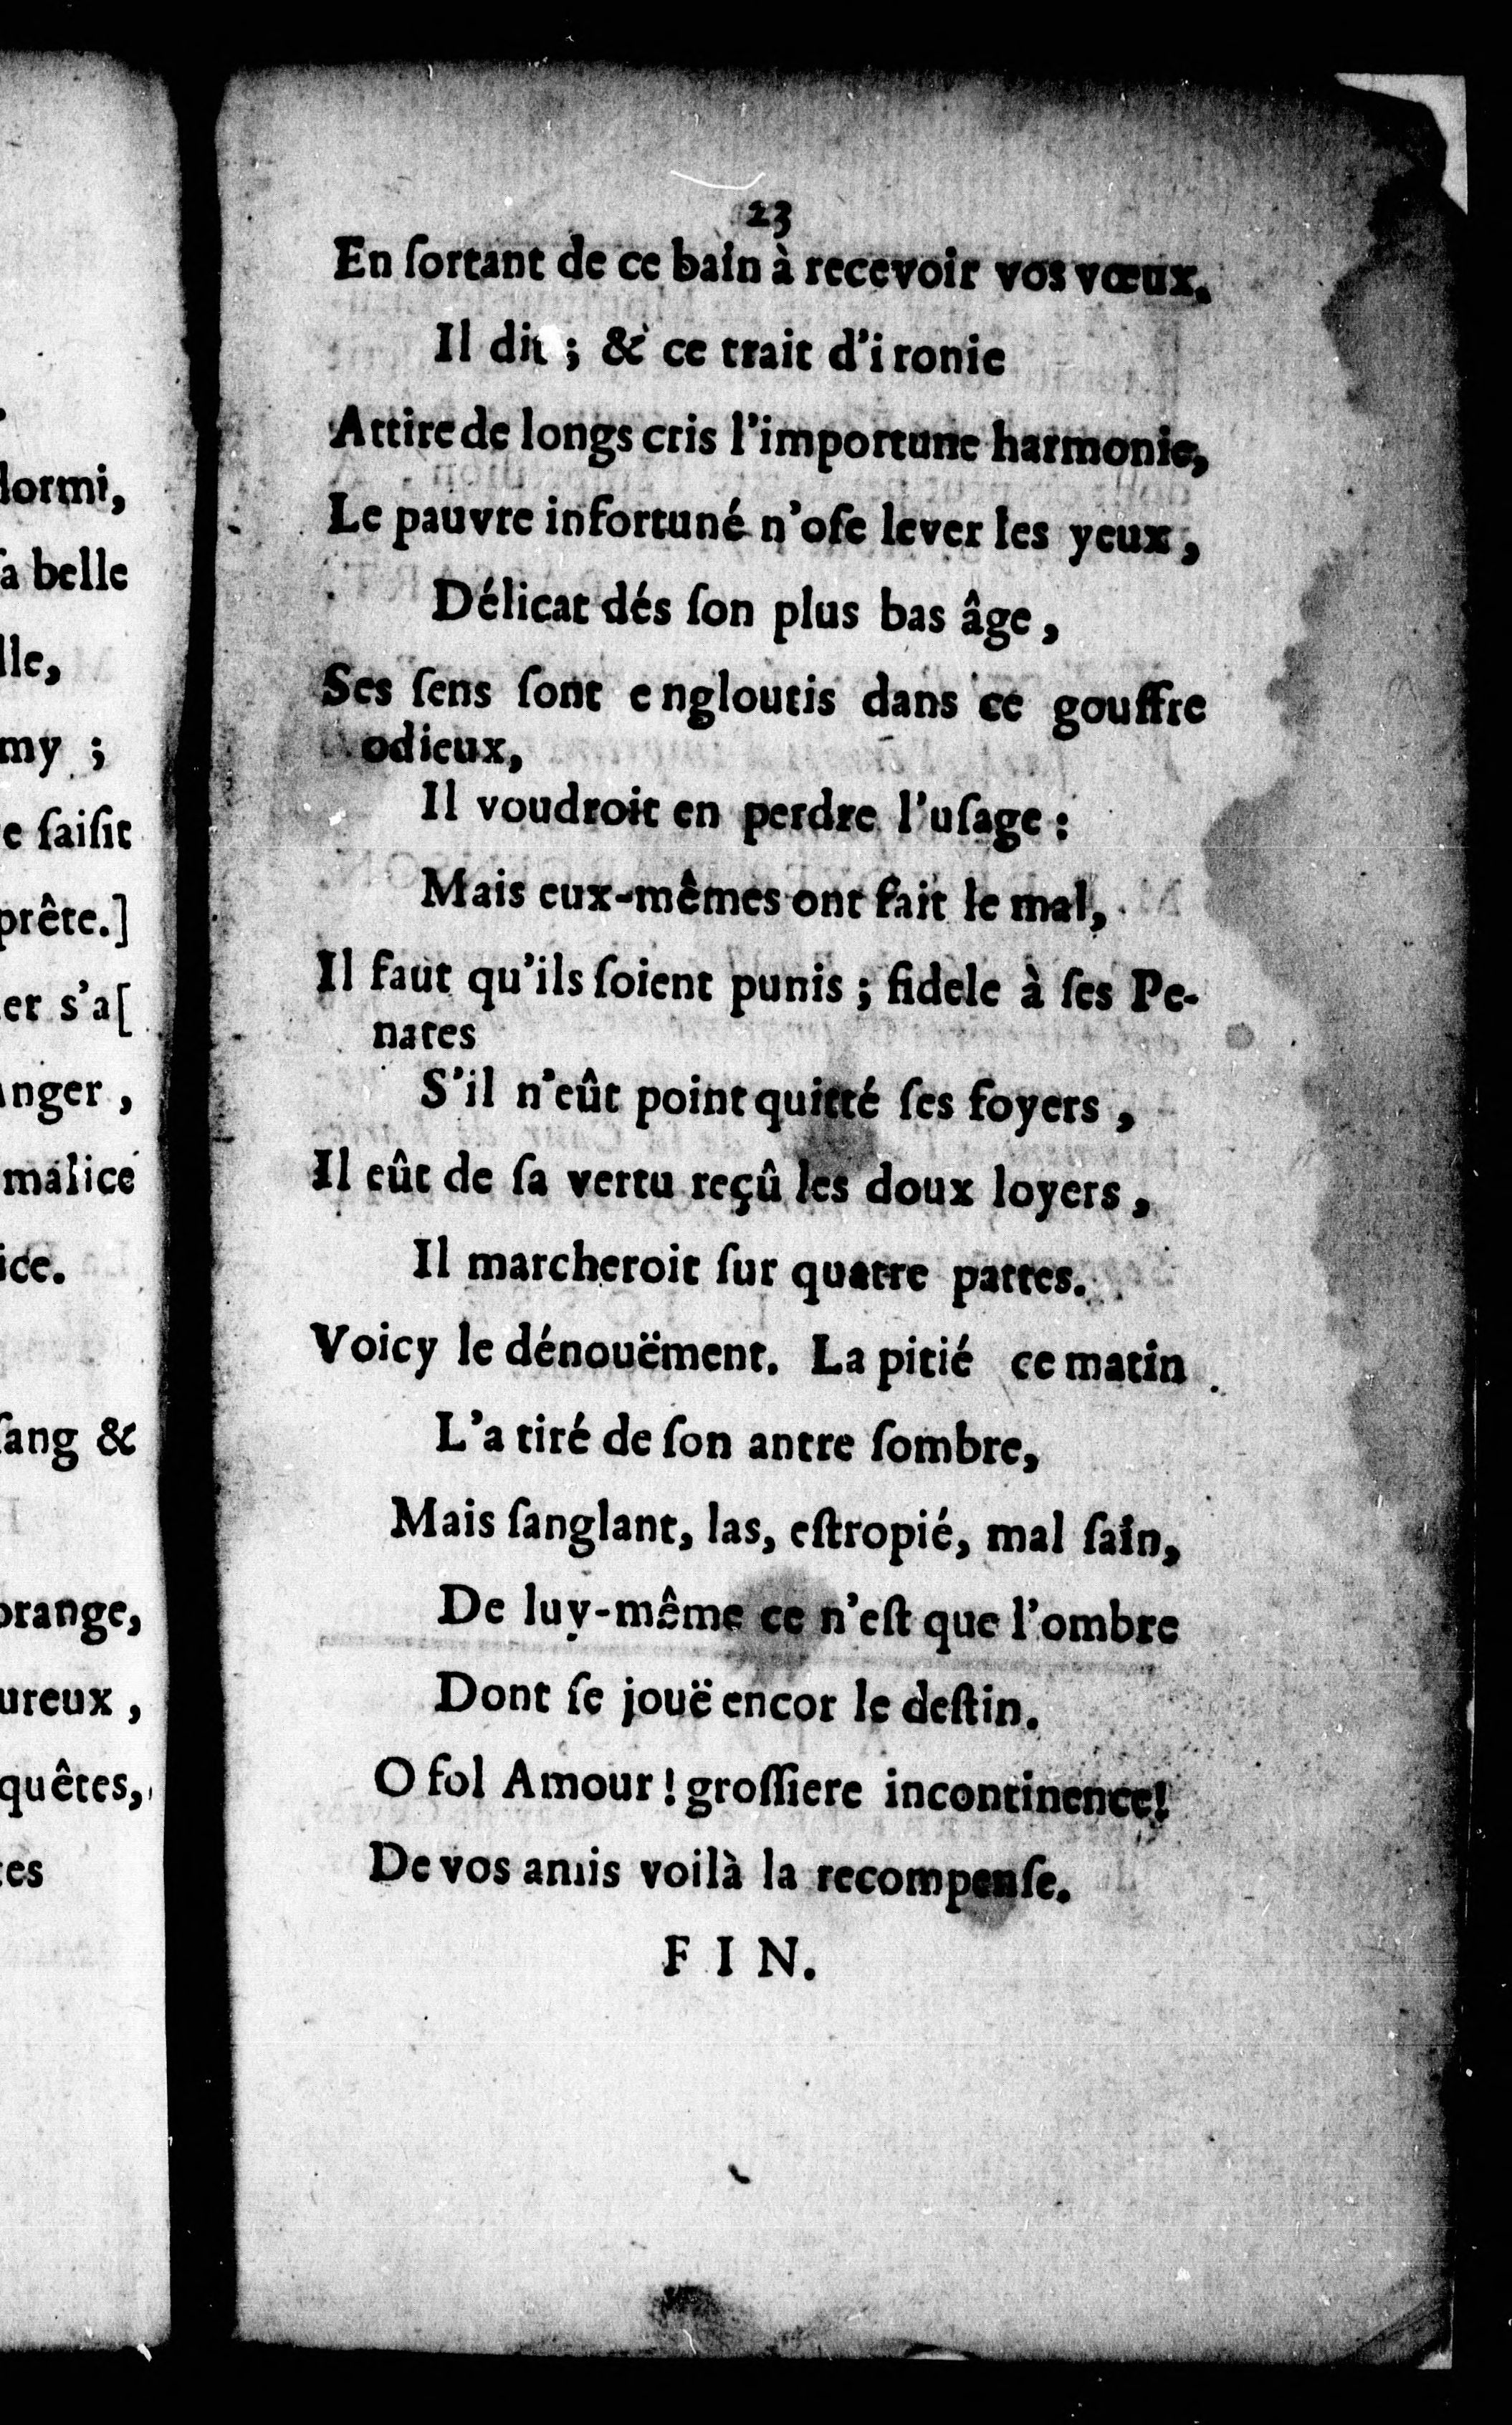 dormi,
a belle
lle,
my ;
e ſaiſit
prête.]
er s'a[
nger ,
malice
ice.
ſang &
orange,
ureux ,
quêtes,
es
23
En ſortant de ce bain à recevoir vos vœux.
Il dit ; & ce trait d'ironie
Attire de longs cris l'importune harmonie,
Le pauvre infortuné n'oſe lever les yeux ,
Délicat dés ſon plus bas âge ,
Ses ſens ſont engloutis dans ce gouffre
odieux,
Il voudroit en perdre l'uſage :
Mais eux-mêmes ont fait le mal,
Il faut qu'ils ſoient punis ; fidele à ſes Pe-
nates
S'il n'eût point quitté ſes foyers ,
Il eût de ſa vertu reçû les doux loyers ,
Il marcheroit ſur quatre pattes.
Voicy le dénouëment. La pitié ce matin
L'a tiré de ſon antre ſombre,
Mais ſanglant, las, eſtropié, mal ſain,
De luy-même ce n'eſt que l'ombre
Dont ſe jouë encor le deſtin.
O fol Amour ! groſſiere incontinence!
De vos amis voilà la recompenſe.
F I N.